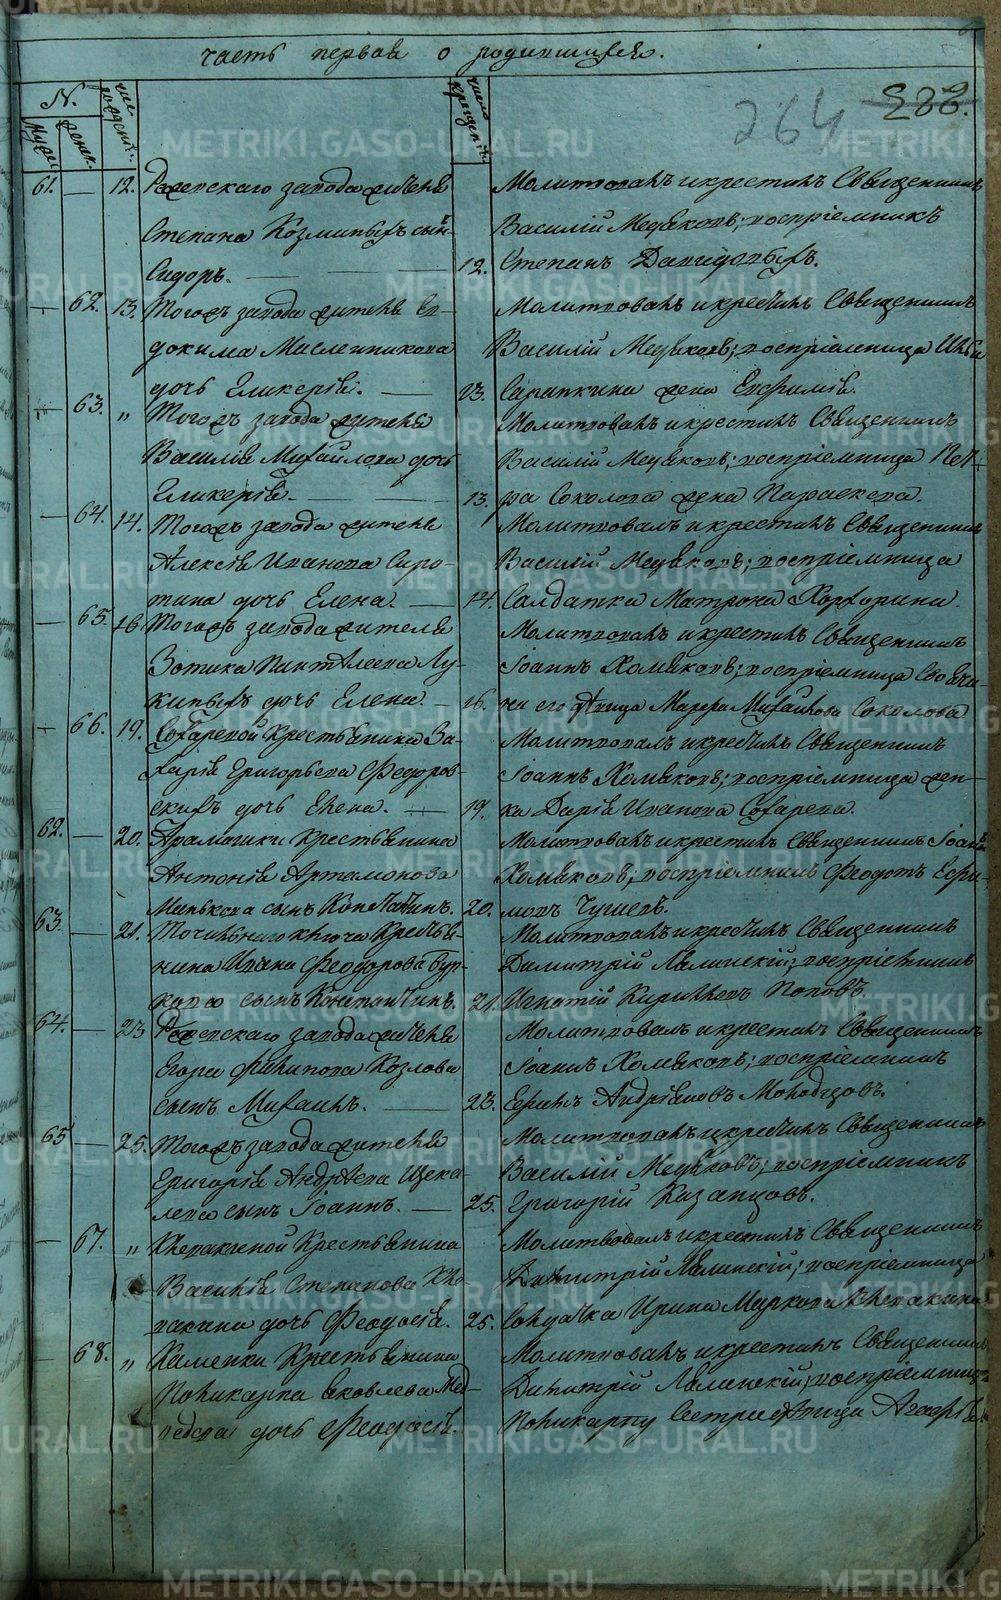 часть первая о родившихся.
N.
264
288.
61. — 12. Режевскаго завода жителя
Степана Козминыхъ сынъ
Сидоръ.
Молитвовалъ и крестилъ Священникъ
Василій Медяковъ; воспріемникъ
12. Степанъ Давидовыхъ.
— 62. 13. Тогожъ завода жителя Ев-
докима Масленникова
дочь Гликерія.
Молитвовалъ и крестилъ Священникъ
Василій Медяковъ; воспріемница
13. жена Евфимія.
— 63. „ Тогожъ завода жителя
Василія Михайлова дочь
Гликерія.
Молитвовалъ и крестилъ Священникъ
Василій Медяковъ; воспріемница Пет-
13. ра Соколова жена Параскева.
— 64. 14. Тогожъ завода жителя
Алексія Иванова Сиро-
тина дочь Елена.
Молитвовалъ и крестилъ Священникъ
Василій Медяковъ; воспріемница
14. Салдатка Матрона
— 65. 16. Тогожъ завода жителя
Зотика Пантелеева Лу-
киныхъ дочь Елена.
Молитвовалъ и крестилъ Священникъ
Іоаннъ Хомяковъ; воспріемница
16. его дѣвица Михайлова Соколова
— 66. 19. Сохаревой Крестьянина За-
харія Григорьева Федоров-
скихъ дочь Елена.
Молитвовалъ и крестилъ Священникъ
Іоаннъ Хомяковъ; воспріемница жен-
19. ка Дарія Иванова Сохарева.
62. — 20. Арамашки Крестьянина
Антонія Артамонова
Манькова сынъ Константинъ.
Молитвовалъ и крестилъ Священникъ Іоаннъ
Хомяковъ; воспріемникъ Феодотъ Ефи-
20. мовъ
63. — 21. Точильнаго ключа Крестья-
нина Ивана Феодорова Бур-
сынъ Константинъ.
Молитвовалъ и крестилъ Священникъ
Димитрій Лялинскій; воспріемникъ
21. Игнатій Кириловъ Поповъ.
64. — 23 Режевскаго завода жителя
Егора Филипова Козлова
сынъ Михаилъ.
Молитвовалъ и крестилъ Священникъ
Іоаннъ Хомяковъ; воспріемникъ
23. Андріяновъ Молодцовъ.
65 — 25. Тогожъ завода жителя
Григорія Андреева Щека-
лева сынъ Іоаннъ.
Молитвовалъ и крестилъ Священникъ
Василій Медяковъ; воспріемникъ
25. Григорій Казанцовъ.
— 67. „ Клевакиной Крестьянина
Василія Степанова Кле-
вакина дочь Феодосія.
Молитвовалъ и крестилъ Священникъ
Димитрій Лялинскій; воспріемница
25. Солдатка Ирина Маркова Клевакина
— 68. „ Каменки Крестьянина
Поликарпа Яковлева Мед-
ведева дочь Феодосія.
Молитвовалъ и крестилъ Священникъ
Димитрій Лялинскій; воспріемница
Поликарпу сестра дѣвица Агафія.
METRIKI.GASO-URAL.RU